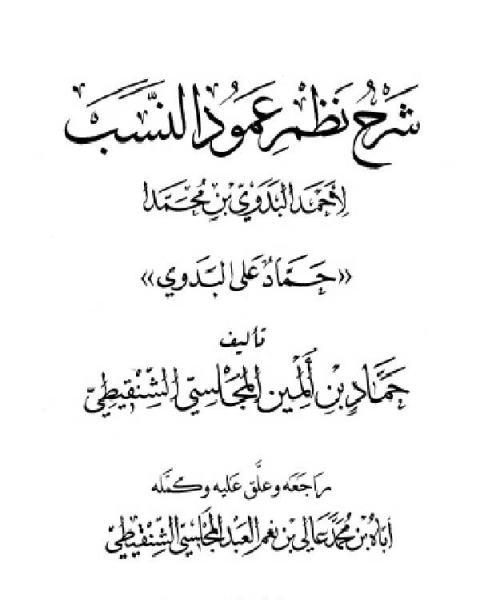 شَرْحُ نَظْمِ عَمُودُ النَّسَبَ
لِأَحْمَد البَدَوِيّ بْنِ مُحَمَّدَا
«حَمَّادٌ عَلى البَّدَوي»
تأليف
حَمَّادِ بْنِ أَلْمِين المَجْلِسِيّ الشِّنْقِيطِيّ
رَاجَعَه وعَلَّق عَلَيه وكَمَّله
أبَّاهُ بْن مُحَمَّد عَالِي بْن نِعَم العَبْد المَجْلِسِيّ الشِّنْقِيطِيّ